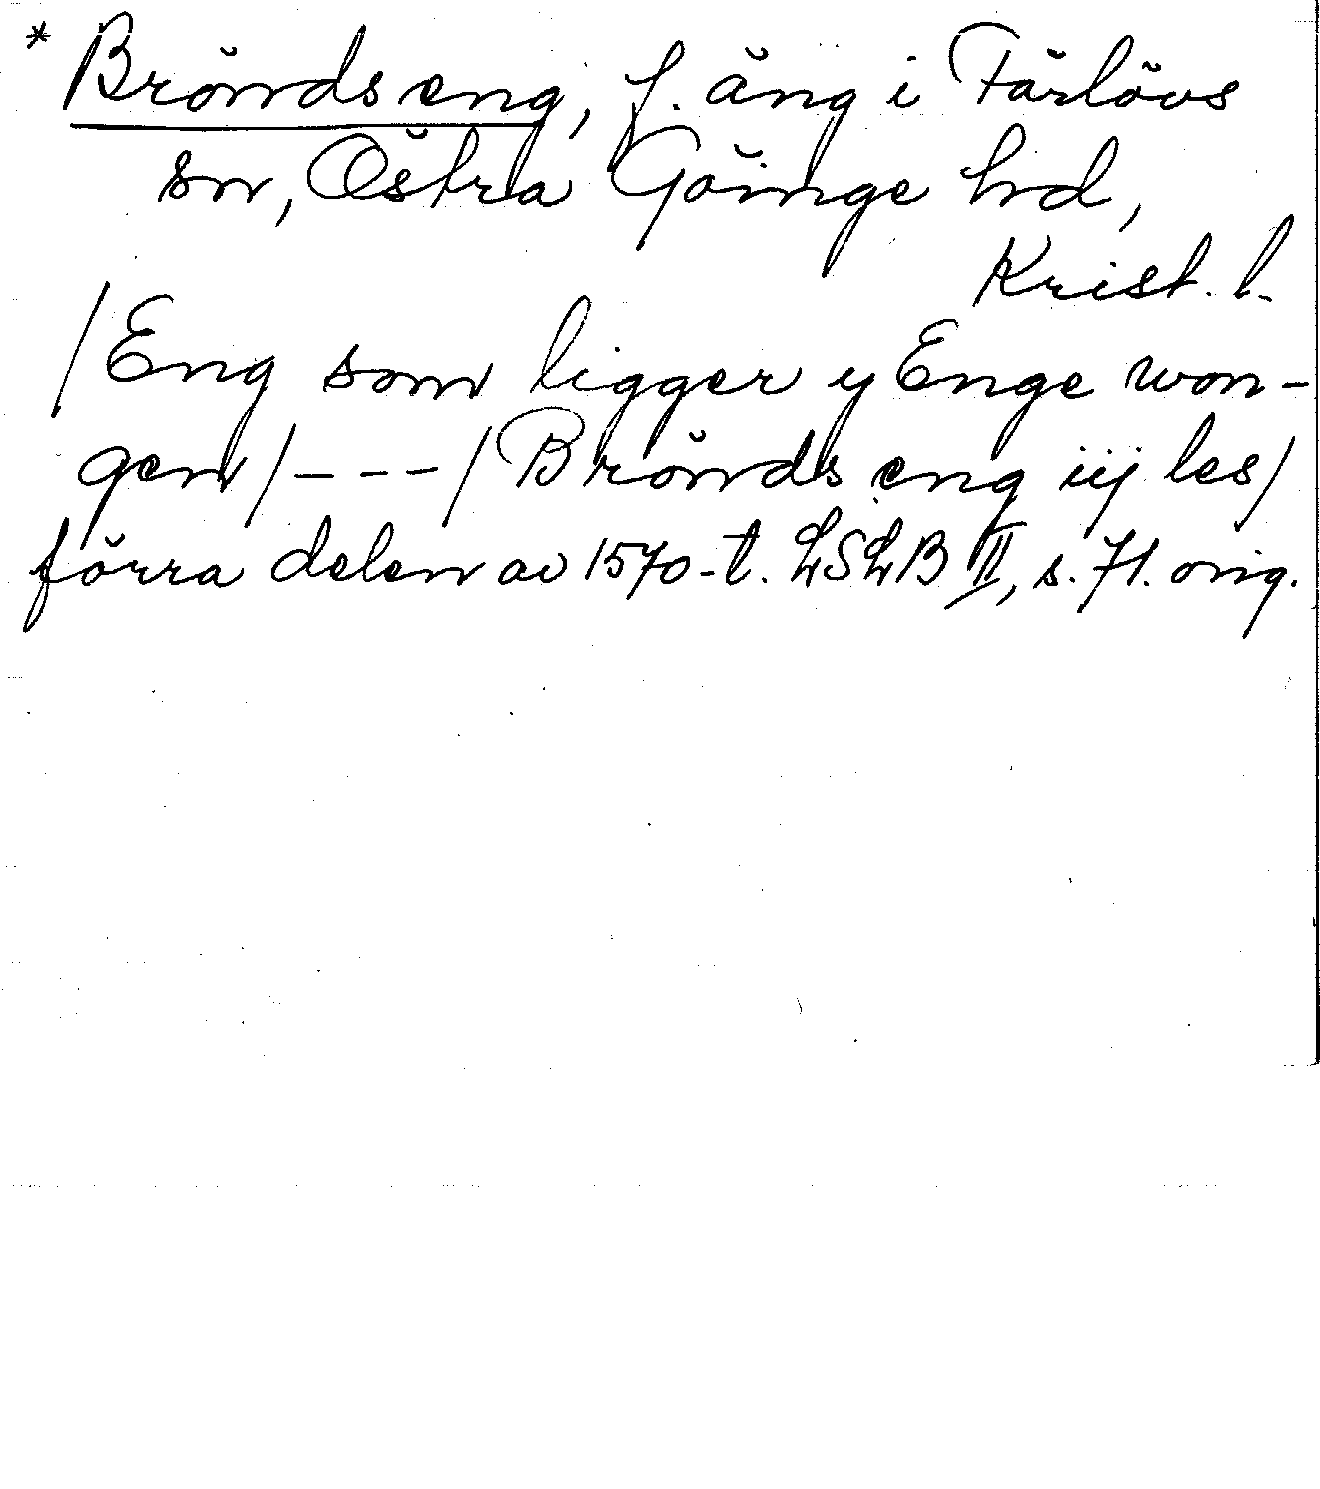 * Brönds eng, f. äng i Färlövs
sn, Östra Göinge hd,
Krist. l.
/Eng som ligger y Enge won-
gen/---/Brönds eng iij les/
förra delen av 1570-t. LSLB II, s. 71. orig.